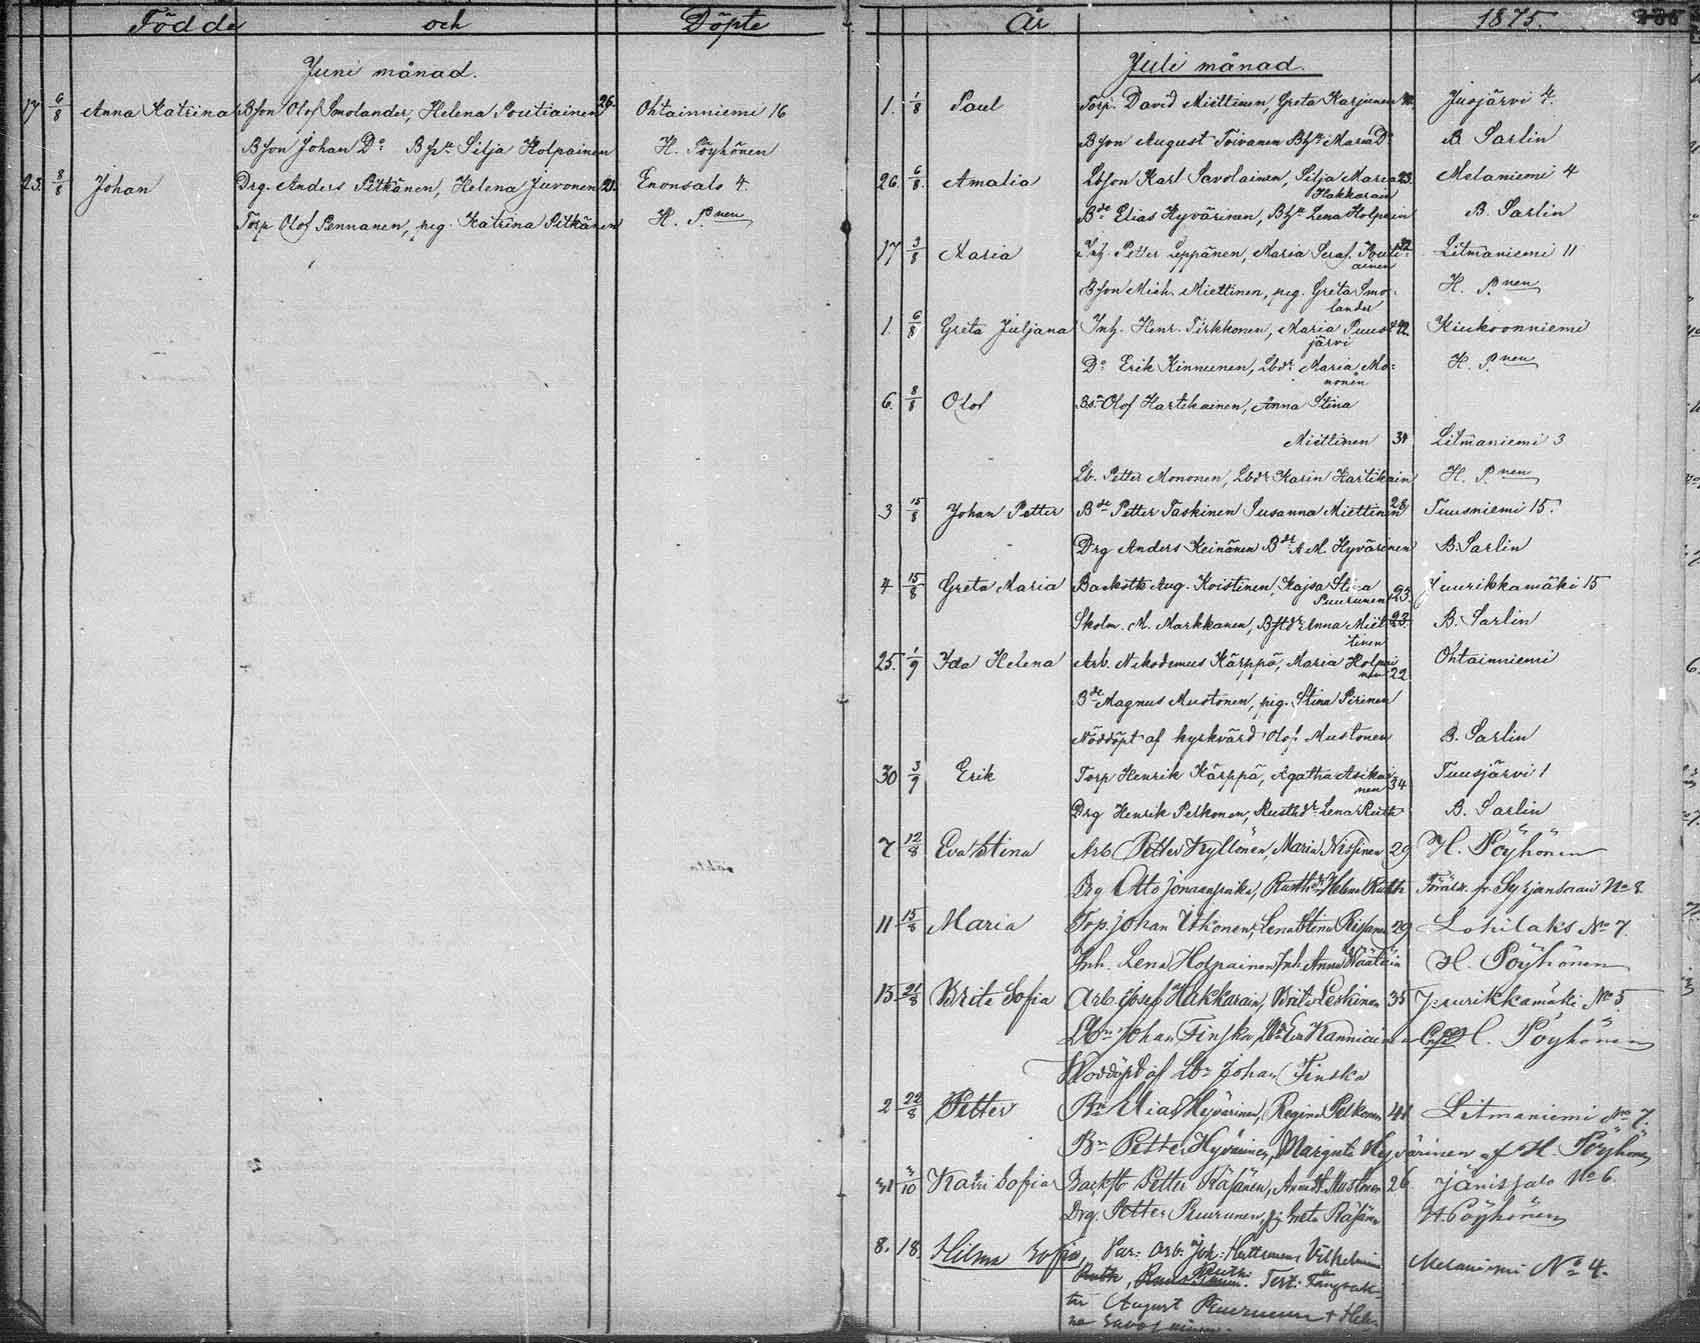 Födde och Döpte
Juni månad.
17 6/8 Anna Katrina Bson Olof Smolander, Helena Poutiainen 26. Ohtainniemi 16
Bson Johan Do Silja Holpainen H. Pöyhönen
23. 8/8 Johan Drg. Anders Pitkänen, Helena Juvonen 21. Enonsalo 4.
Torp Olof Pennanen, pig. Katrina Pitkänen H. P.nen
År 1875.
Juli månad.
1. 1/8 Paul Torp. David Miettinen, Greta Karjunen Jusjärvi 4.
Bson August Toivanen Maria Do B. Sarlin
26. 6/8 Amalia Lbson Karl Savolainen, Silja Maria 23. Melaniemi 4
Hakkarain
Bde Elias Hyvärinen, Lena Holpain B. Sarlin
17 3/8 Maria Inh. Petter Leppänen, Maria Seraf. Pouti- 32. Litmaniemi 11
ainen
Bson Mich. Miettinen, pig. Greta Smo- H. P.nen
lander
1. 6/8 Greta Juljana Inh. Henr. Tirkkonen, Maria Puus 42. Kiukoonniemi
järvi
Do Erik Kinnunen, Lbdr Maria Mo- H. P.nen
nonen
6. 8/8 Olof Olof Hartikainen, Anna Stina
Miettinen 34 Litmaniemi 3
Lb. Petter Mononen, Lbdr Karin Hartikain H. P.nen
3 15/8 Johan Petter Bde Petter Taskinen Susanna Miettinen 28 Tuusniemi 15.
Drg Anders Keinänen Bdr A M. Hyvärinen B. Sarlin
4 15/8 Greta Maria Aug. Koistinen, Kajsa Stina Juurikkamäki 15
Puurunen 23.
Skolm. M. Markkanen, Anna Miet 23. B. Sarlin
tinen
25. 1/9 Ida Helena Arb. Nikodemus Kärppä, Maria Holpai Ohtainniemi
nen 22
Bde Magnus Mustonen, pig. Stina Pirinen
Nöddöpt af kyrkvärd Olof Mustonen B. Sarlin
30 3/9 Erik Torp Henrik Kärppä, Agatha Asikai Tuusjärvi 1
nen 34
Drg Henrik Pelkonen, Lena Ruth B. Sarlin
7 12/8 Eva Stina Arb Petter Kyllönen, Maria Nissinen 29 H. Pöyhönen
Drg Otto Helena Ruth No 8
11 15/8 Maria Torp. Johan Itkonen, Lena Stina Rissanen 29 Lohilaks No 7.
Inh. Lena Holpainen, Inh Anna Väätäin H. Pöyhönen
15 21/8 Brita Sofia Arb. Josef Hakkarain, Brita Leskinen 35 Juurikkamäki No 5
Johan Finska, H. Pöyhönen
Nöddöpt af Johan Finska
2 22/8 Petter Elias Hyvärinen, Regina Pelkonen 41 Litmaniemi No 7.
Petter Hyvärinen, Margreta Hyvärinen af H. Pöyhönen
31 3/10 Katri Sofia Petter Räsänen, Anna St. Mustonen 26 Jänissalo No 6.
Drg. Petter Puurunen, Greta Räsänen H Pöyhönen
8. 18. Hilma Sofia, Par: Arb. Joh: Vilhelmina Melaniemi No 4.
Ruth, Test: Fångvak-
tar August Puurunen + Hele-
na Savolainen.